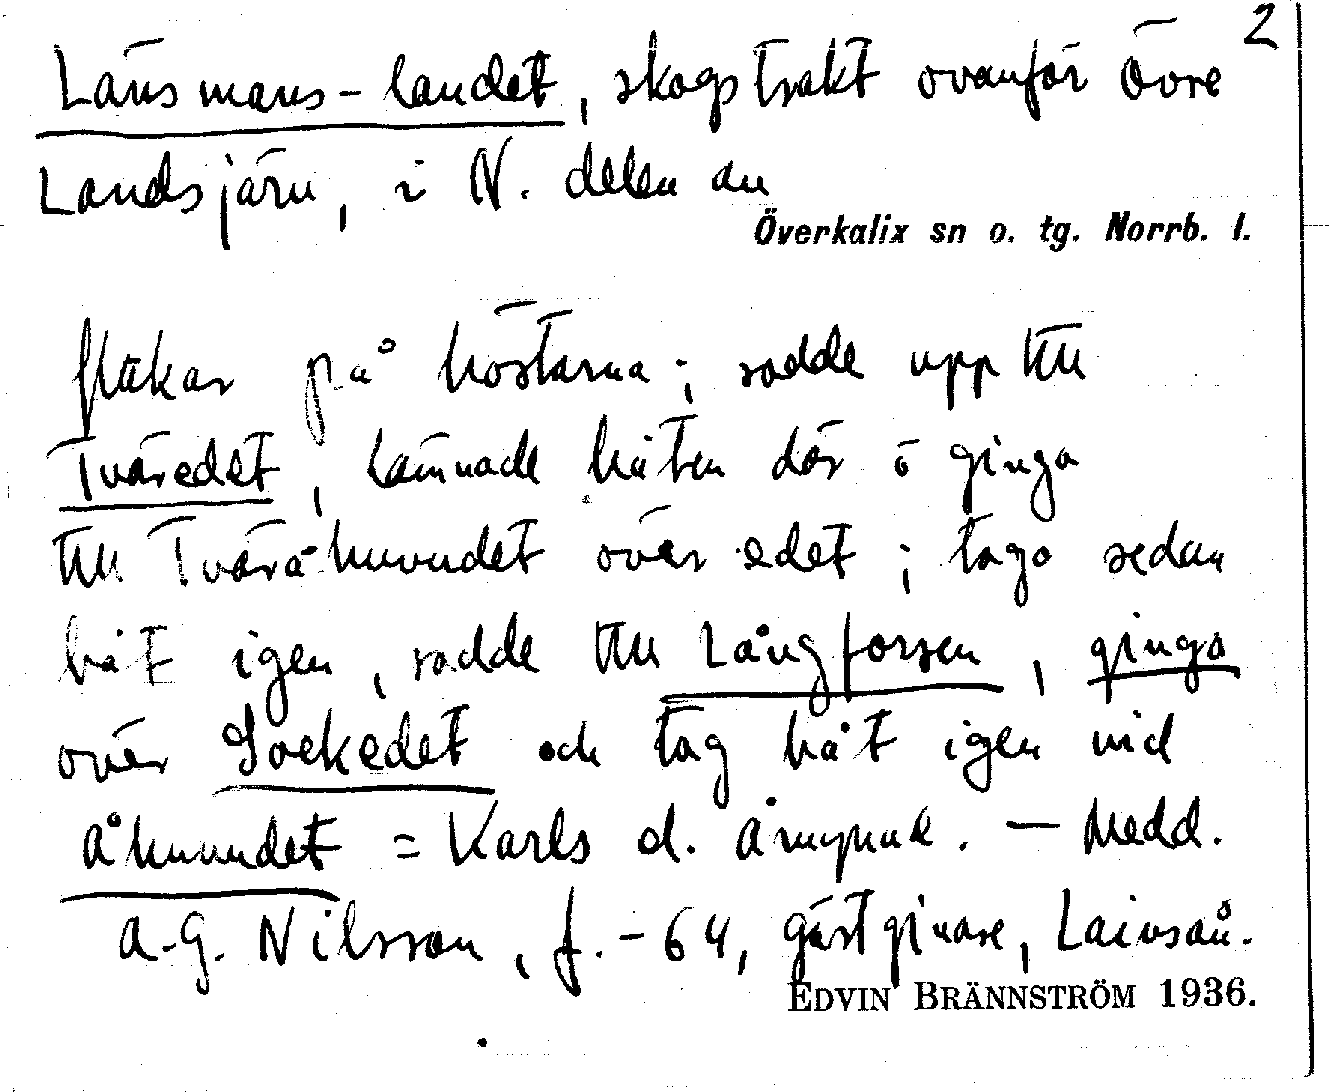 2
Länsmans-landet, skogstrakt ovanför Övre
Landsjärv, i N. delen av
Överkalix sn o. tg. Norrb. l.
flåkar på höstarna; rodde upp till
Tväredet, lämnade båten där ō ginga
till Tväråhuvudet över edet; togo sedan
båt igen, rodde till Långforsen, ginga
över Sockedet och tog båt igen vid
Åhuvudet = Karls d. åmynne. — Medd.
A.G. Nilsson, f. -64, gästgivare, Lainsån.
EDVIN BRÄNNSTRÖM 1936.